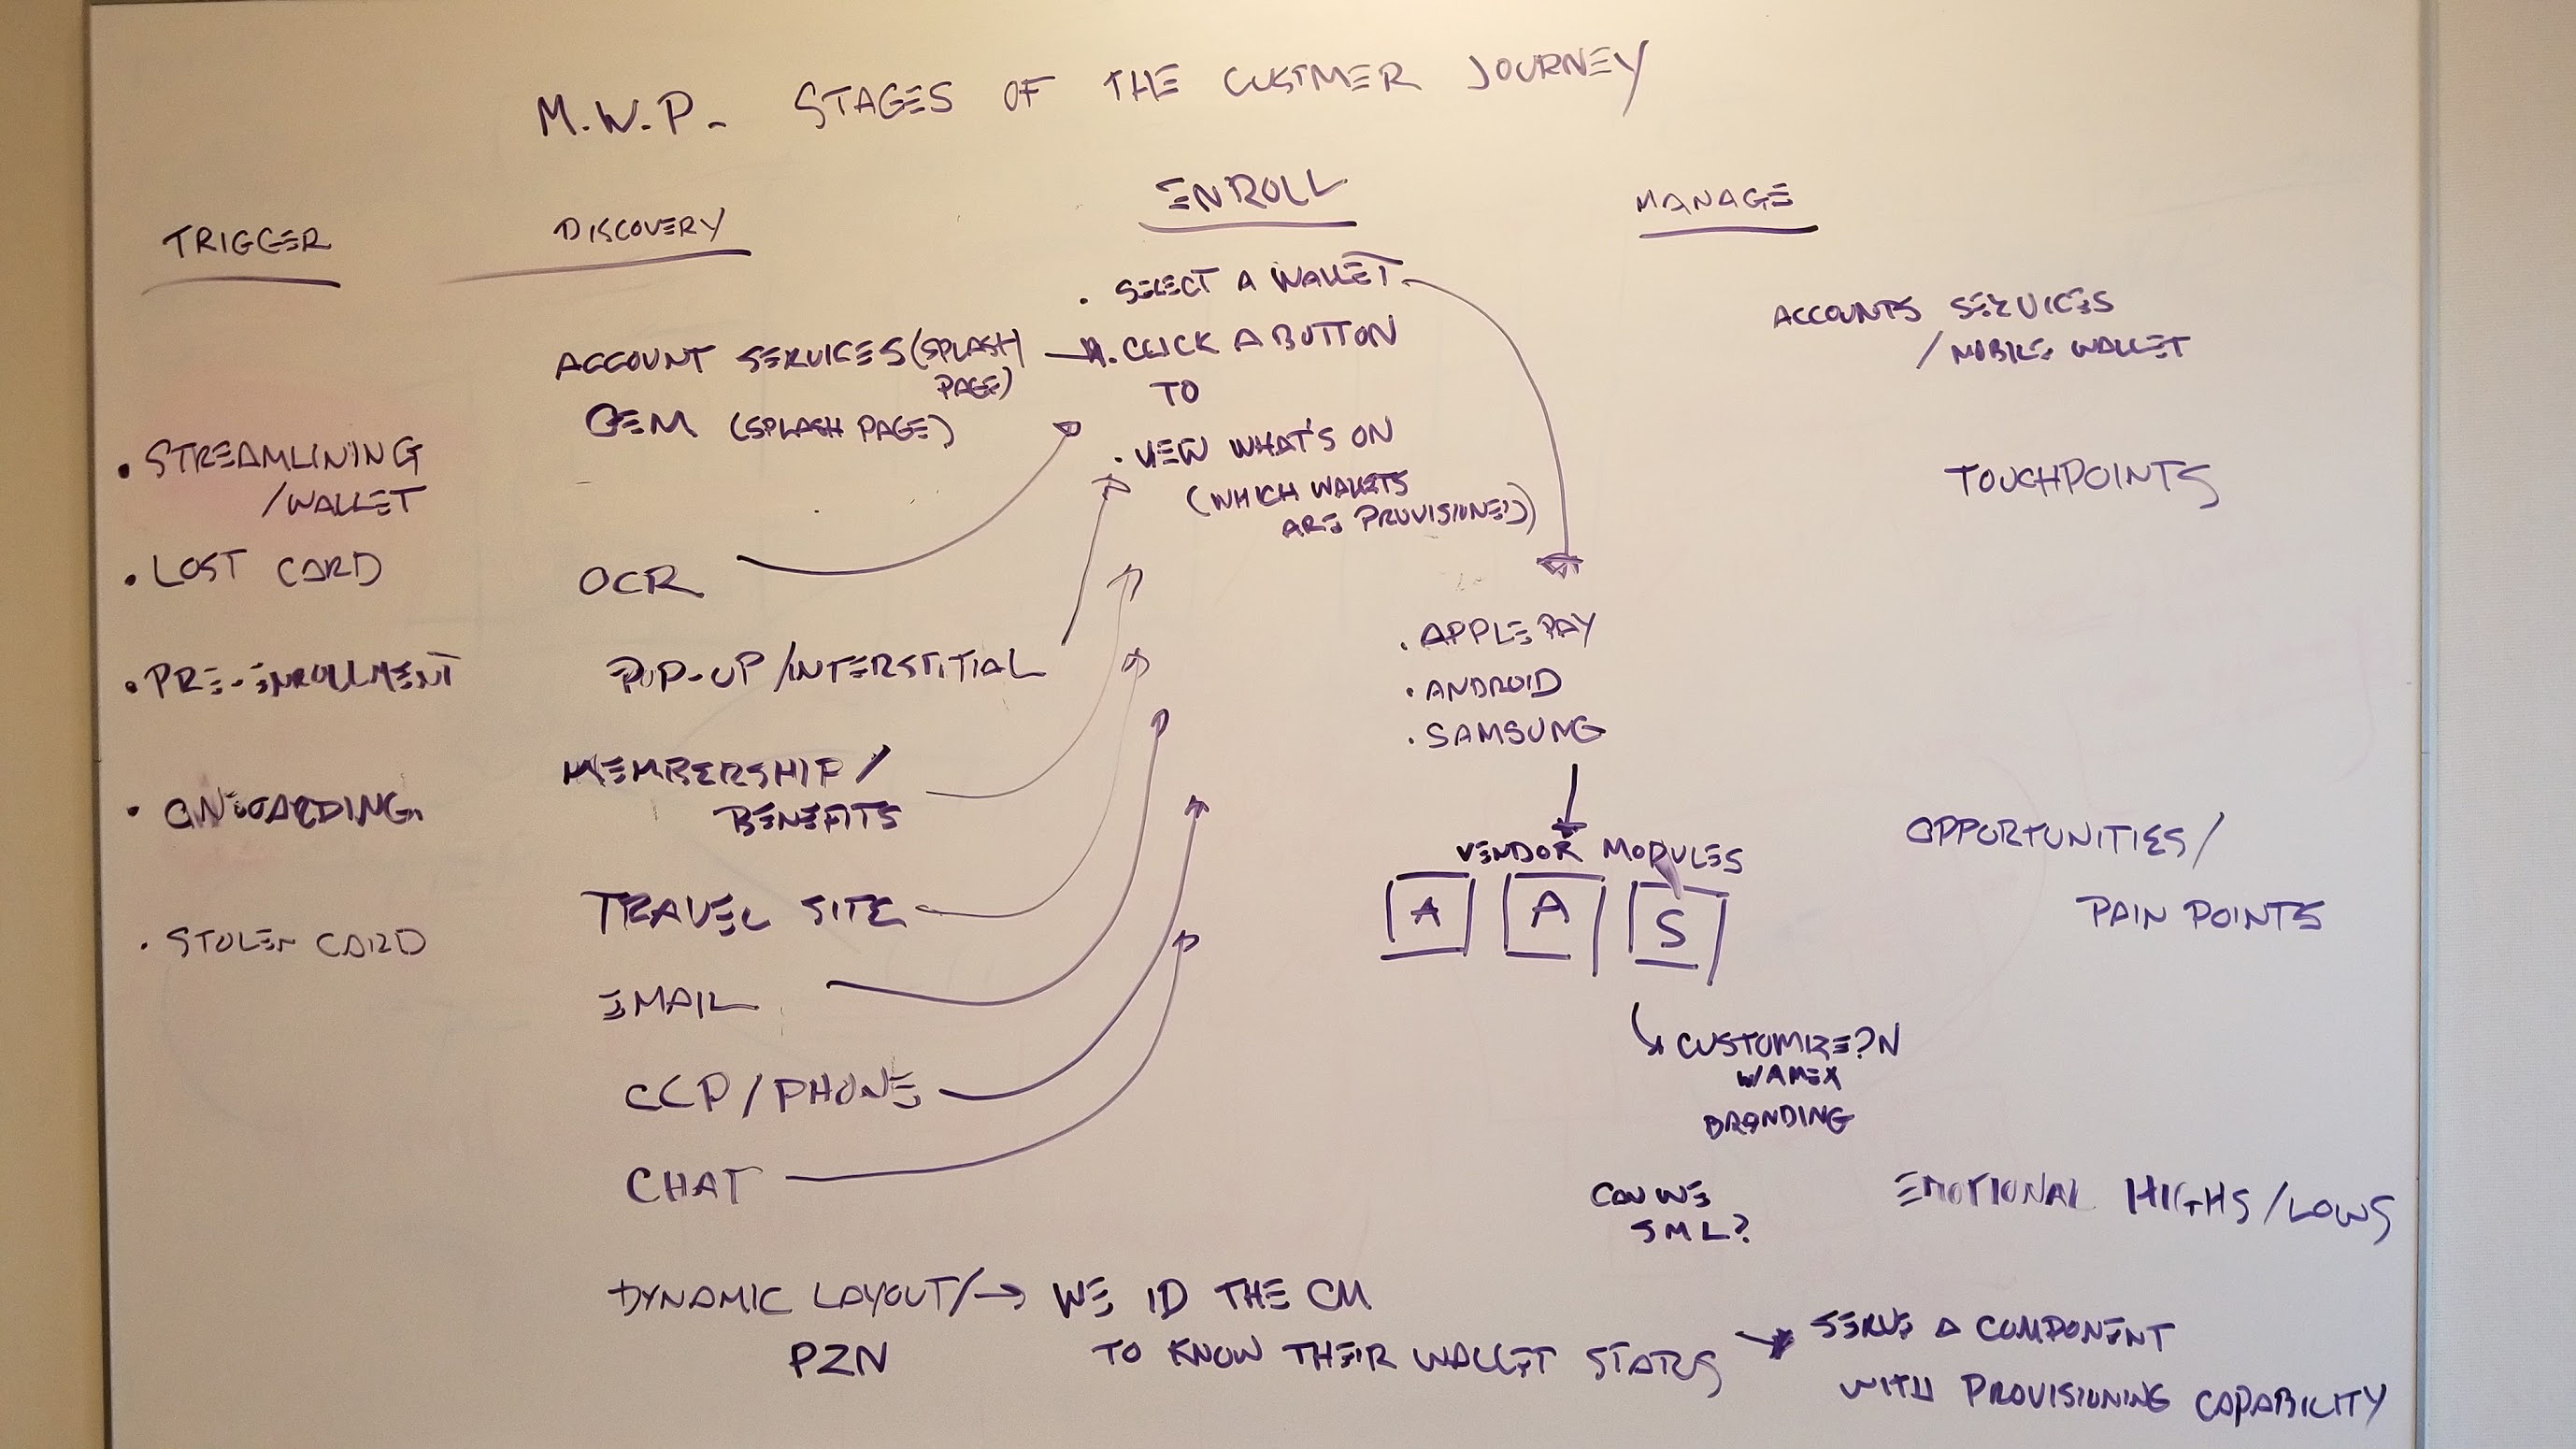 M.W.P. - STAGES OF THE CUSTMER JOURNEY
TRIGGER
• STREAMLINING
/WALLET
• LOST CARD
• PRE-ENROLLMENT
• ONBOARDING
• STOLEN CARD
DISCOVERY
ACCOUNT SERVICES (SPLASH
PAGE)
OEM (SPLASH PAGE)
OCR
POP-UP/INTERSTITIAL
MEMBERSHIP/
BENEFITS
TRAVEL SITE
EMAIL
CCP/PHONE
CHAT
ENROLL
• SELECT A WALLET
• CLICK A BUTTON
TO
• VIEW WHAT'S ON
(WHICH WALLETS
ARE PROVISIONED)
• APPLE PAY
• ANDROID
• SAMSUNG
VENDOR MODULES
A A S
CUSTOMIZE?N
W/AMEX
BRANDING
CAN WE
SML?
MANAGE
ACCOUNTS SERVICES
/MOBILE WALLET
TOUCHPOINTS
OPPORTUNITIES/
PAIN POINTS
EMOTIONAL HIGHS/LOWS
DYNAMIC LAYOUT/→ WE ID THE CM
PZN TO KNOW THEIR WALLET STATUS
→ SERVE A COMPONENT
WITH PROVISIONING CAPABILITY